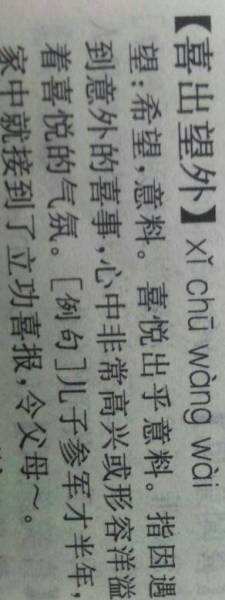 【喜出望外】xǐ chū wàng wài
望:希望,意料。喜悦出乎意料。指因遇
到意外的喜事,心中非常高兴或形容洋溢
着喜悦的气氛。[例句]儿子参军才半年,
家中就接到了立功喜报,令父母～。